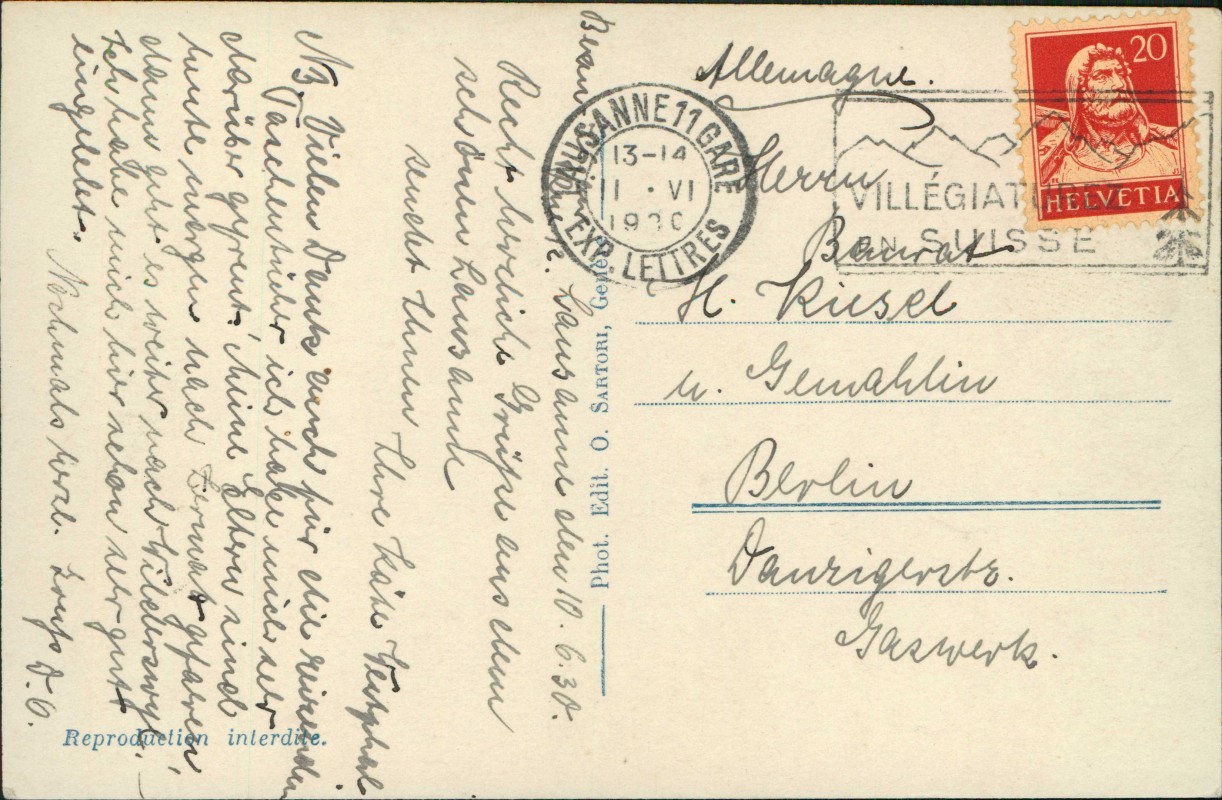 Lausanne den 10.6.30.
Recht herzliche Grüße aus dem
schönen Lausanne
sendet Ihnen Ihre Käte Westphal
NB. Vielen Dank auch für die reizenden
Taschentücher ich habe mich sehr
darüber gefreut. Meine Eltern sind
heute morgen nach Zermat gefahren
dann geht es weiter nach Wilderswyl.
Ich habe mich hier schon sehr gut
eingelebt. Nochmals herzl.
D.O.
Reproduction interdite.
Phot. Edit. O. SARTORI, Genève
Allemagne.
Herrn
Baurat
H. Kiesel
u. Gemahlin
Berlin
Danzigerstr.
Gaswerk.
LAUSANNE 11 GARE
EXP. LETTRES
13-14
11 · VI
1930
VILLÉGIATUREZ
EN SUISSE
20
HELVETIA